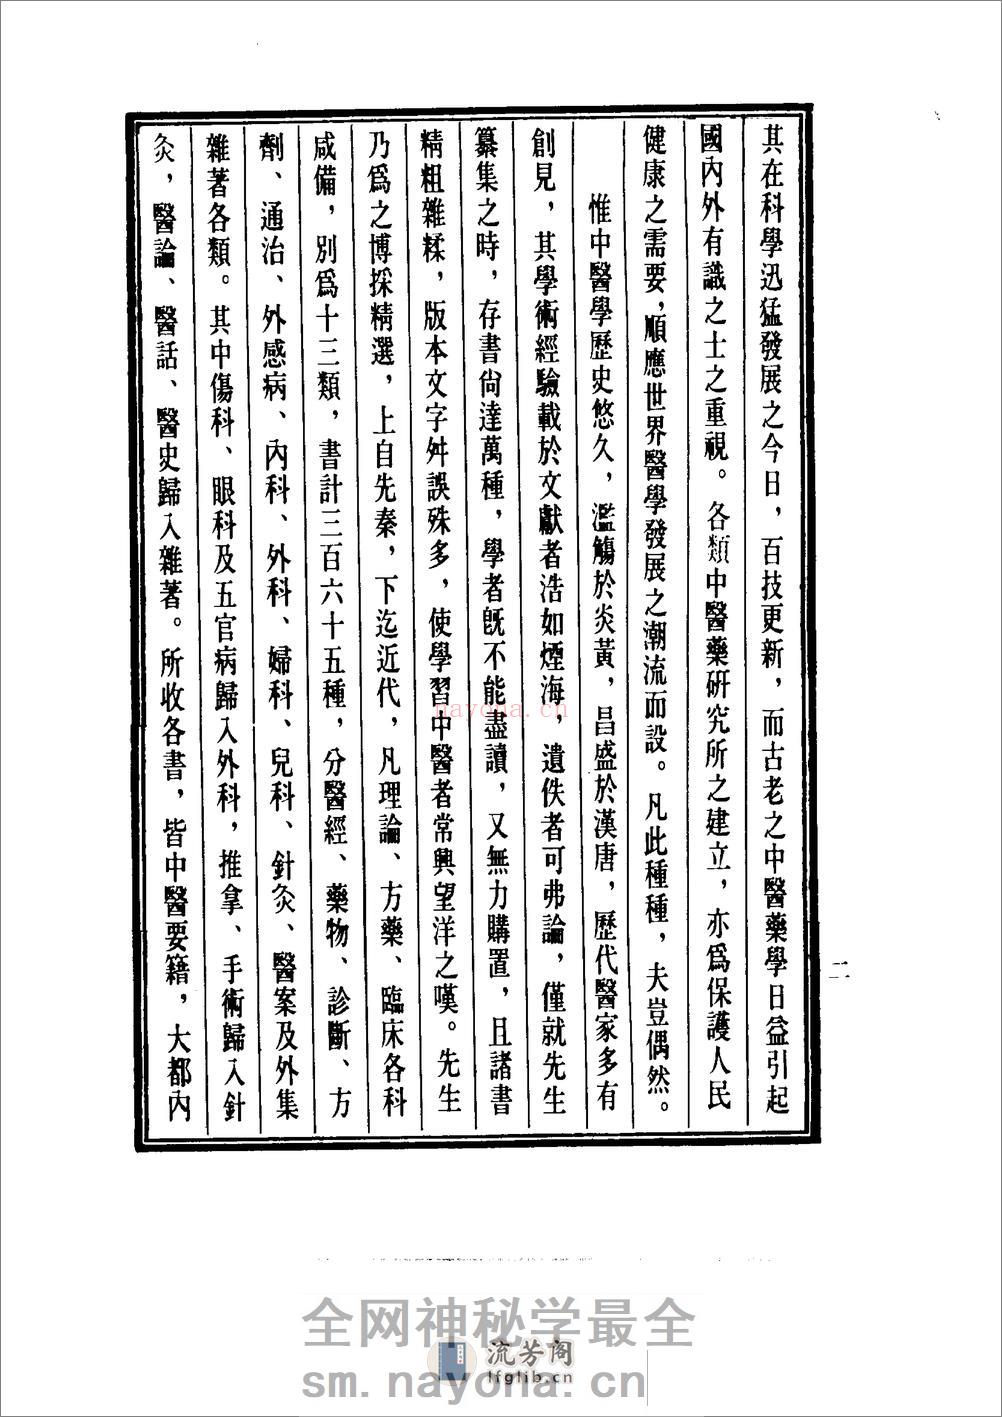 其在科學迅猛發展之今日，百技更新，而古老之中醫藥學日益引起
國內外有識之士之重視。各類中醫藥研究所之建立，亦爲保護人民
健康之需要，順應世界醫學發展之潮流而設。凡此種種，夫豈偶然。
惟中醫學歷史悠久，濫觴於炎黃，昌盛於漢唐，歷代醫家多有
創見，其學術經驗載於文獻者浩如煙海，遺佚者可弗論，僅就先生
纂集之時，存書尙達萬種，學者旣不能盡讀，又無力購置，且諸書
精粗雜糅，版本文字舛誤殊多，使學習中醫者常興望洋之嘆。先生
乃爲之博採精選，上自先秦，下迄近代，凡理論、方藥、臨床各科
咸備，別爲十三類，書計三百六十五種，分醫經、藥物、診斷、方
劑、通治、外感病、內科、外科、婦科、兒科、針灸、醫案及外集
雜著各類。其中傷科、眼科及五官病歸入外科，推拿、手術歸入針
灸，醫論、醫話、醫史歸入雜著。所收各書，皆中醫要籍，大都內
二
nayona.cn
全网神秘学最全
流芳阁
lfglib.cn
sm.nayona.cn